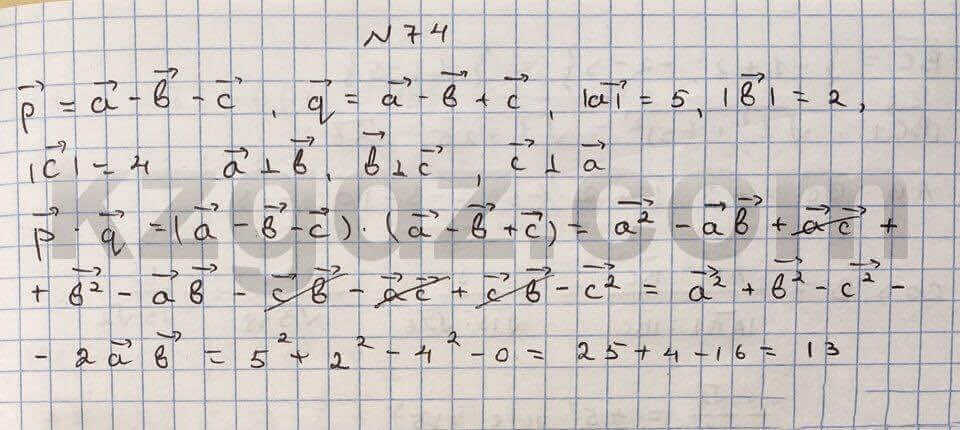 N 74
p⃗ = a⃗ - b⃗ - c⃗, q⃗ = a⃗ - b⃗ + c⃗, |a⃗| = 5, |b⃗| = 2,
|c⃗| = 4 a⃗ ⊥ b⃗, b⃗ ⊥ c⃗, c⃗ ⊥ a⃗
p⃗ · q⃗ = (a⃗ - b⃗ - c⃗) · (a⃗ - b⃗ + c⃗) = a⃗² - a⃗ b⃗ + a⃗ c⃗ +
+ b⃗² - a⃗ b⃗ - c⃗ b⃗ - a⃗ c⃗ + c⃗ b⃗ - c⃗² = a⃗² + b⃗² - c⃗² -
- 2 a⃗ b⃗ = 5² + 2² - 4² - 0 = 25 + 4 - 16 = 13
kzgdz.com